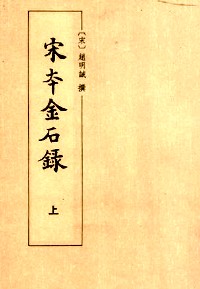 〔宋〕趙明誠 撰
宋本金石録
上